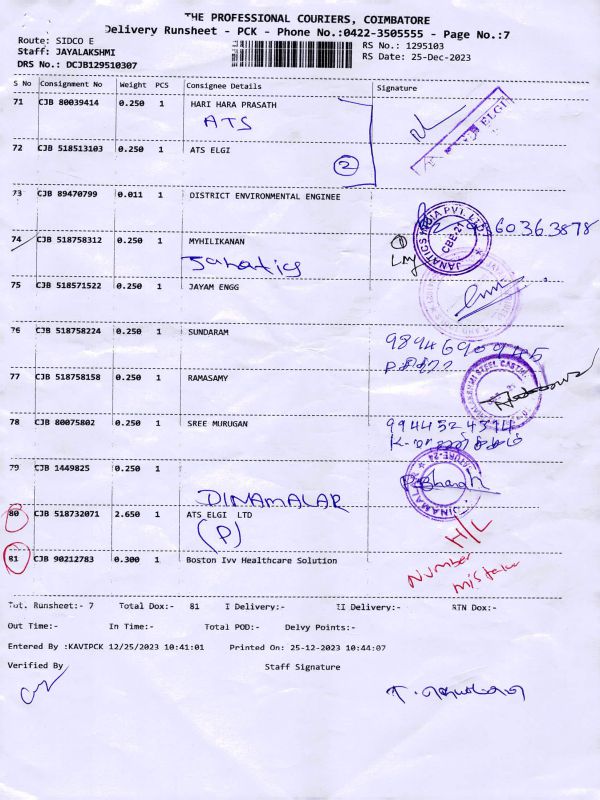 THE PROFESSIONAL COURIERS, COIMBATORE
Delivery Runsheet - PCK - Phone No.:0422-3505555 - Page No.:7
Route: SIDCO E
RS No.: 1295103
Staff: JAYALAKSHMI
RS Date: 25-Dec-2023
DRS No.: DCJB129510307
S No Consignment No Weight PCS Consignee Details Signature
71 CJB 80039414 0.250 1 HARI HARA PRASATH
ATS
72 CJB 518513103 0.250 1 ATS ELGI
2
73 CJB 89470799 0.011 1 DISTRICT ENVIRONMENTAL ENGINEE
74 CJB 518758312 0.250 1 MYHILIKANAN
Janatics
75 CJB 518571522 0.250 1 JAYAM ENGG
76 CJB 518758224 0.250 1 SUNDARAM
77 CJB 518758158 0.250 1 RAMASAMY
78 CJB 80075802 0.250 1 SREE MURUGAN
9944524374
79 CJB 1449825 0.250 1
DINAMALAR
80 CJB 518732071 2.650 1 ATS ELGI LTD
(P)
H/L
81 CJB 90212783 0.300 1 Boston Ivv Healthcare Solution
Number
mistake
Tot. Runsheet:- 7 Total Dox:- 81 I Delivery:- II Delivery:- RTN Dox:-
Out Time:- In Time:- Total POD:- Delvy Points:-
Entered By :KAVIPCK 12/25/2023 10:41:01 Printed On: 25-12-2023 10:44:07
Verified By Staff Signature